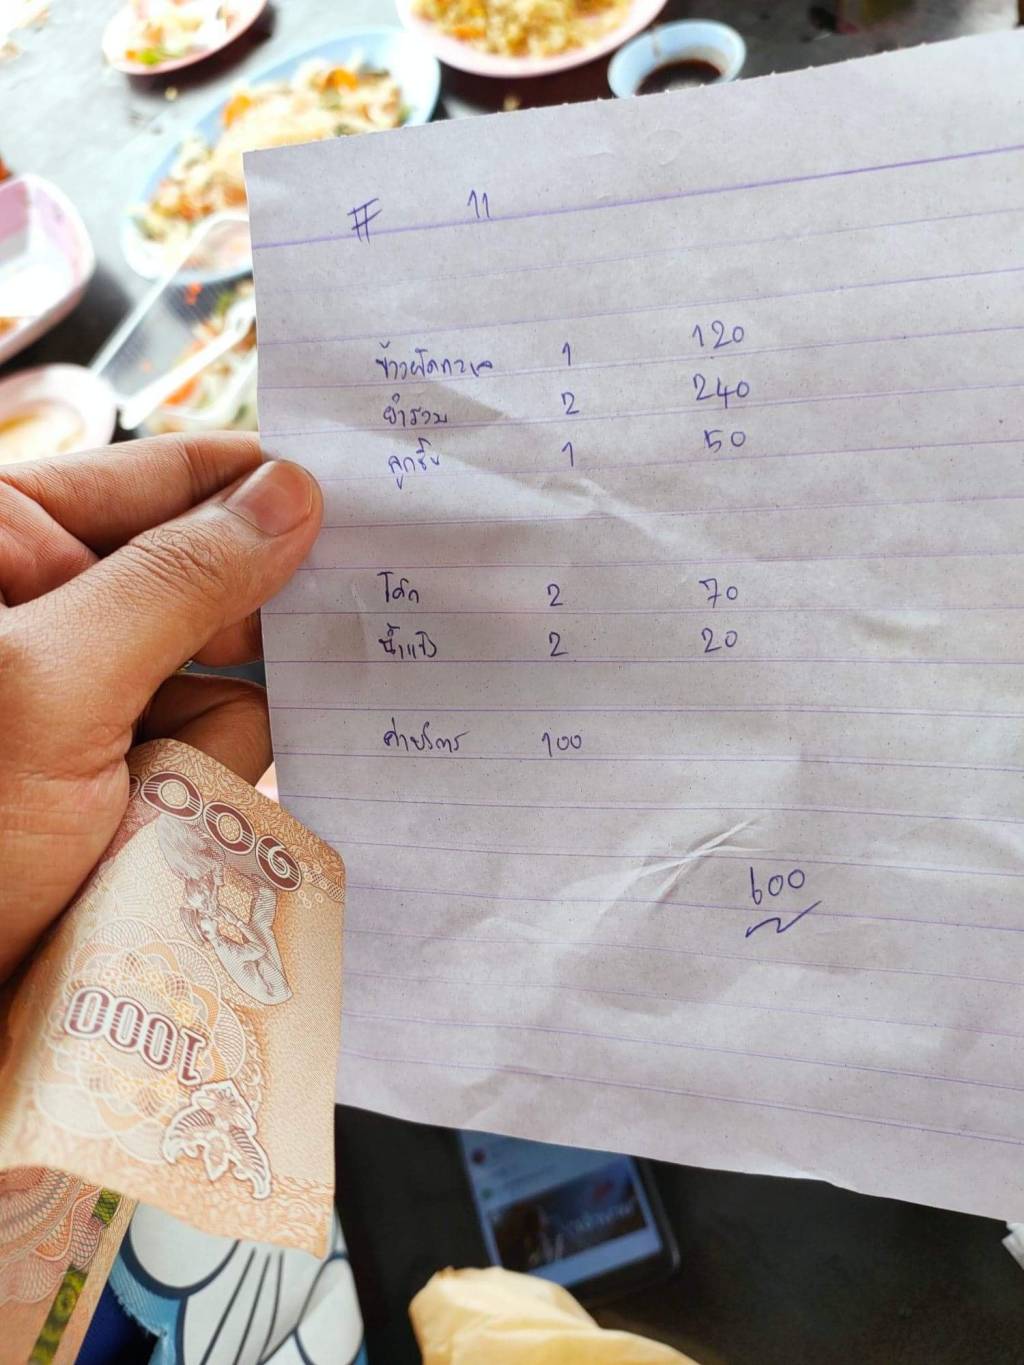 # 11
ข้าวผัดทะเล 1 120
ยำรวม 2 240
ลูกชิ้น 1 50
โค้ก 2 70
น้ำแข็ง 2 20
ค่าบริการ 100
600
๑๐๐๐
1000